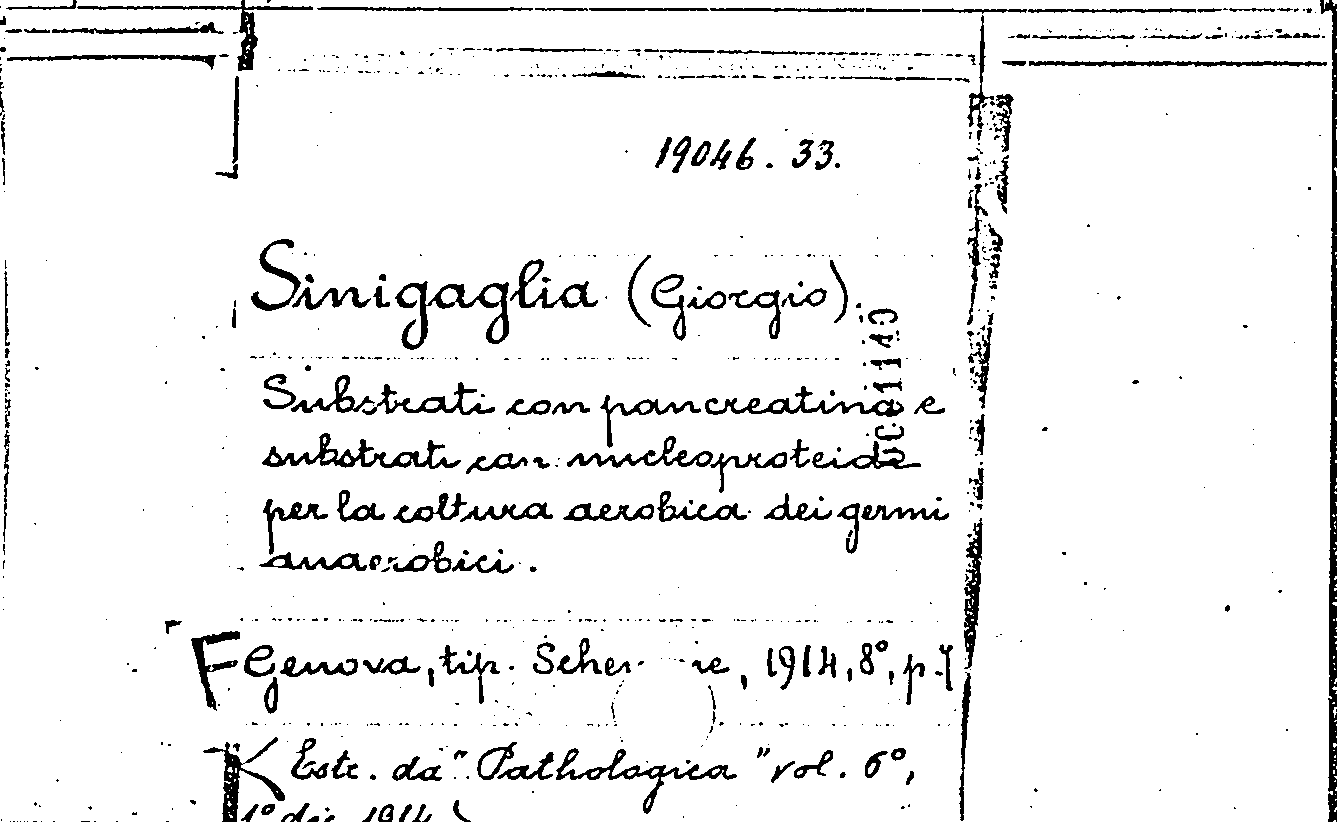 19046.33.
Sinigaglia (Giorgio).
Substrati con pancreatina e
substrati con nucleoproteide
per la coltura aerobica dei germi
anaerobici.
Genova, tip. 1914, 8°, p. 7
Estr. da "Pathologica" vol. 6°,
1° dic. 1914)